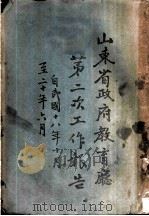 山東省政府教育廳
第二次工作報告
自民國十八年十月
至二十年六月